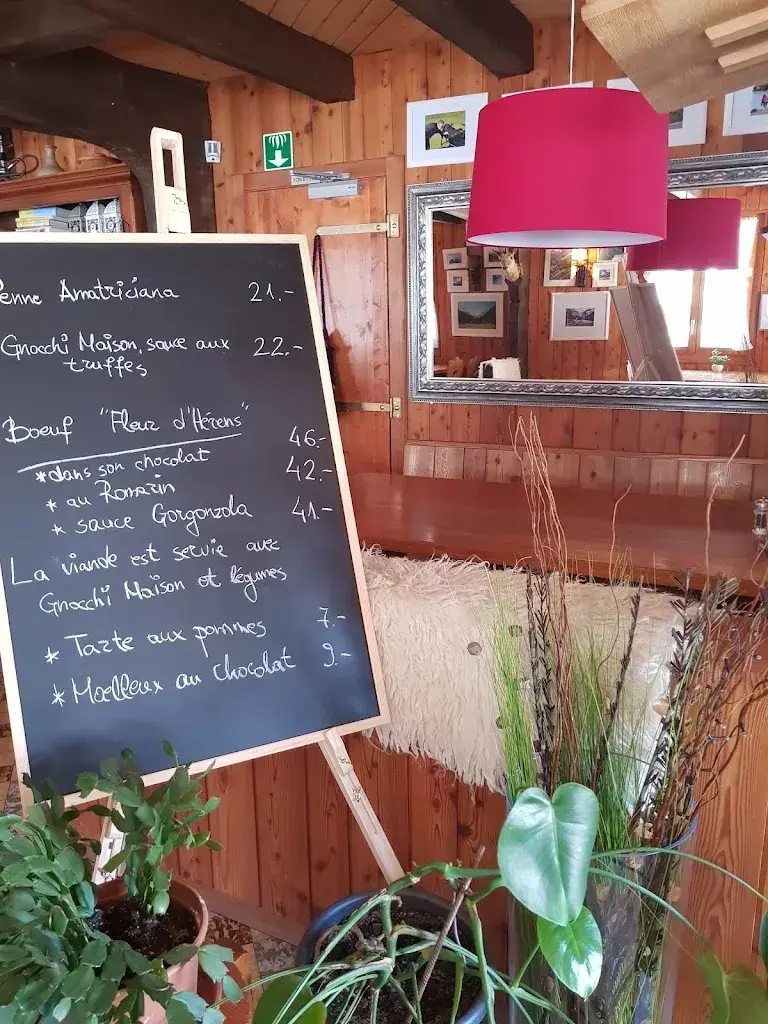 enne Amatriciana 21.-
Gnocchi Maison, sauce aux 22.-
truffes
Boeuf "Fleur d'Hérens"
*dans son chocolat 46.-
* au Romarin 42.-
* sauce Gorgonzola 41.-
La viande est servie avec
Gnocchi Maison et légumes
* Tarte aux pommes 7.-
* Moelleux au chocolat 9.-